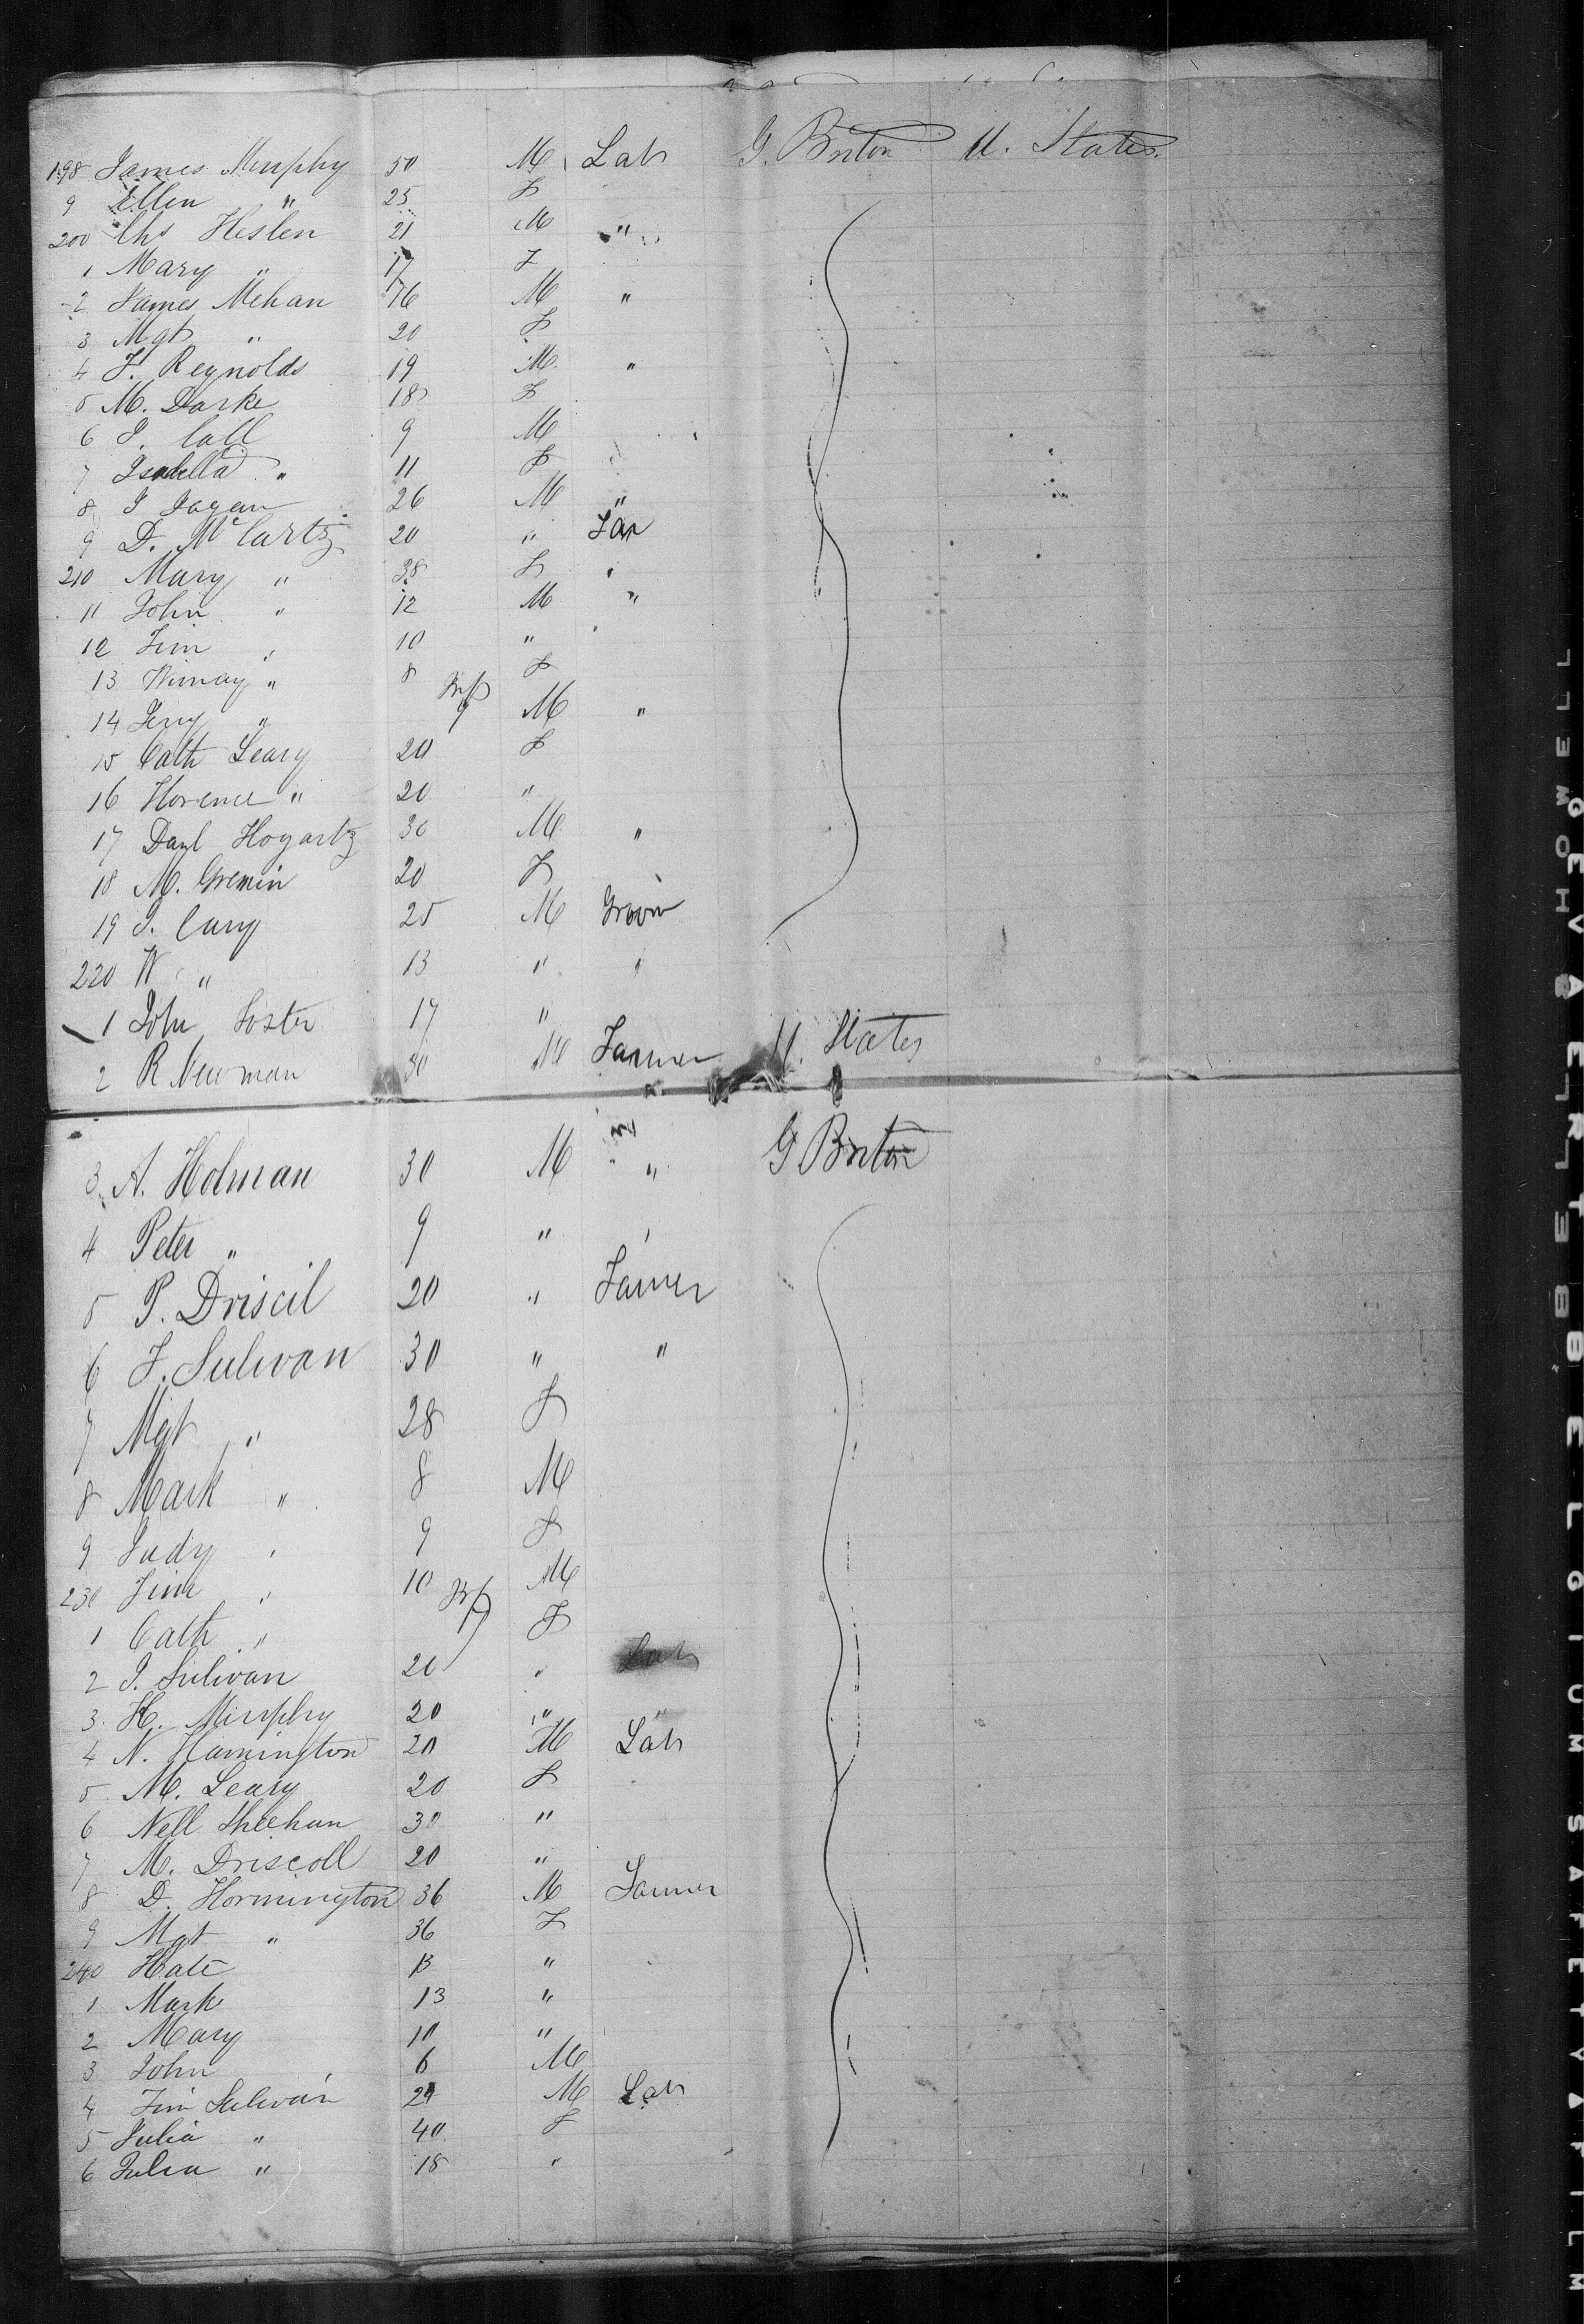 198 James Murphy 50 M Lab G. Briton U. States.
9 Ellen " 25 F
200 Chs Heslen 21 M "
1 Mary " 17 F
2 James Mehan 76 M "
3 Mgt " 20 F
4 F. Reynolds 19 M "
5 M. Darke 18 F
6 J. Call 9 M
7 Isabella " 11 F
8 J Fagan 26 M "
9 D. McCarty 20 " Far
210 Mary " 38 F "
11 John " 12 M "
12 Jim " 10 "
13 " 8 F
14 Jerry " Inf M "
15 Cath Leary 20 F
16 Florence " 20 "
17 Danl Hogarty 30 M "
18 M. Gremin 20 F
19 J. Cary 25 M Groom
220 W " 13 " "
1 John Foster 17 "
2 R Newman 30 M Farmer U. States
3 A. Holman 30 M " G Briton
4 Peter " 9 "
5 P. Driscil 20 " Farmer
6 J. Sulivan 30 " "
7 Mgt " 28 F
8 Mark " 8 M
9 Judy " 9 F
230 Jim " 10 M
1 Cath " Inf F
2 J. Sulivan 20 " Lab
3 H. Murphy 20 "
4 N. Hamington 20 M Lab
5 M. Leary 20 F
6 Nell Sheehan 30 "
7 M. Driscoll 20 "
8 D. Hormington 36 M Farmer
9 Mgt " 36 F
240 Kate 13 "
1 Mark 13 "
2 Mary 10 "
3 John 6 M
4 Jim Sulivan 24 M Lab
5 Julia " 40 F
6 Julia " 18 "
GEVAERT BELGIUM SAFETY FILM